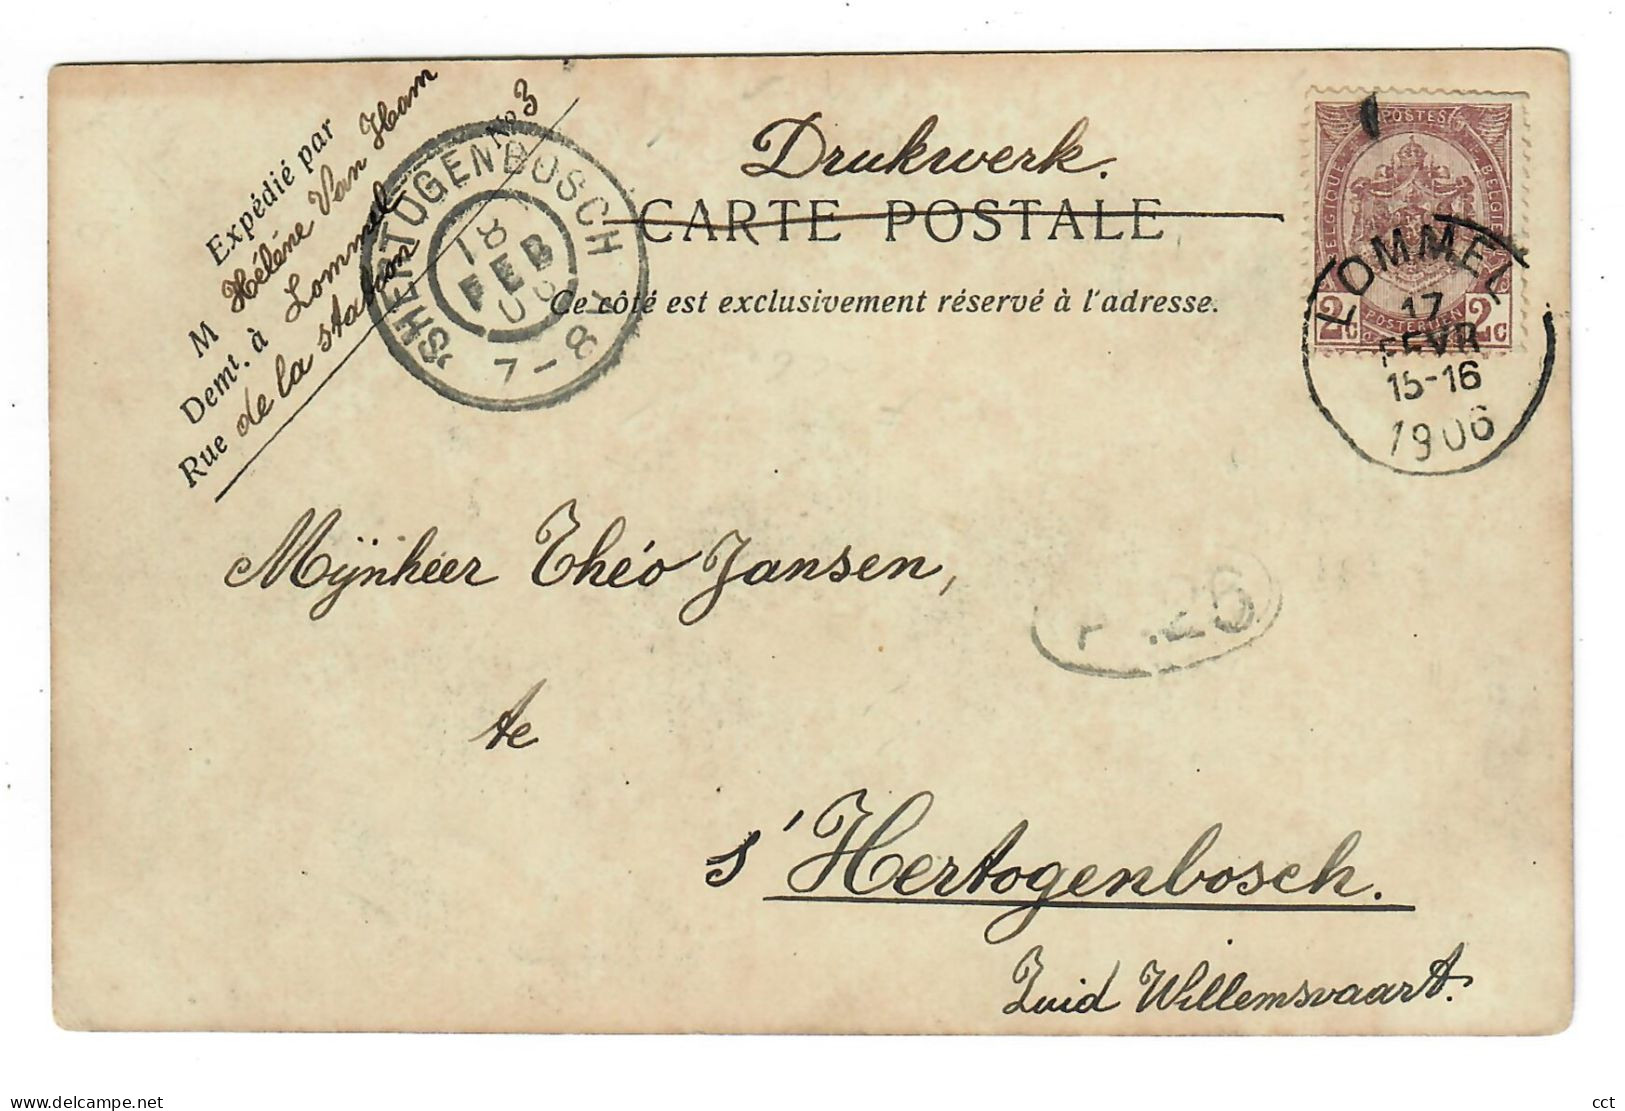 Expédié par
M Hélène Van Ham
Demt. à Lommel
Rue de la station No 3
'SHERTOGENBOSCH
18
FEB
06
7-8
Drukwerk.
CARTE POSTALE
Ce côté est exclusivement réservé à l'adresse.
POSTES
BELGIQUE
BELGIË
POSTERIJEN
2c 2c
LOMMEL
17
FEVR
15-16
1906
Mijnheer Théo Jansen,
te
s'Hertogenbosch.
Zuid Willemsvaart.
delcampe.net
cct